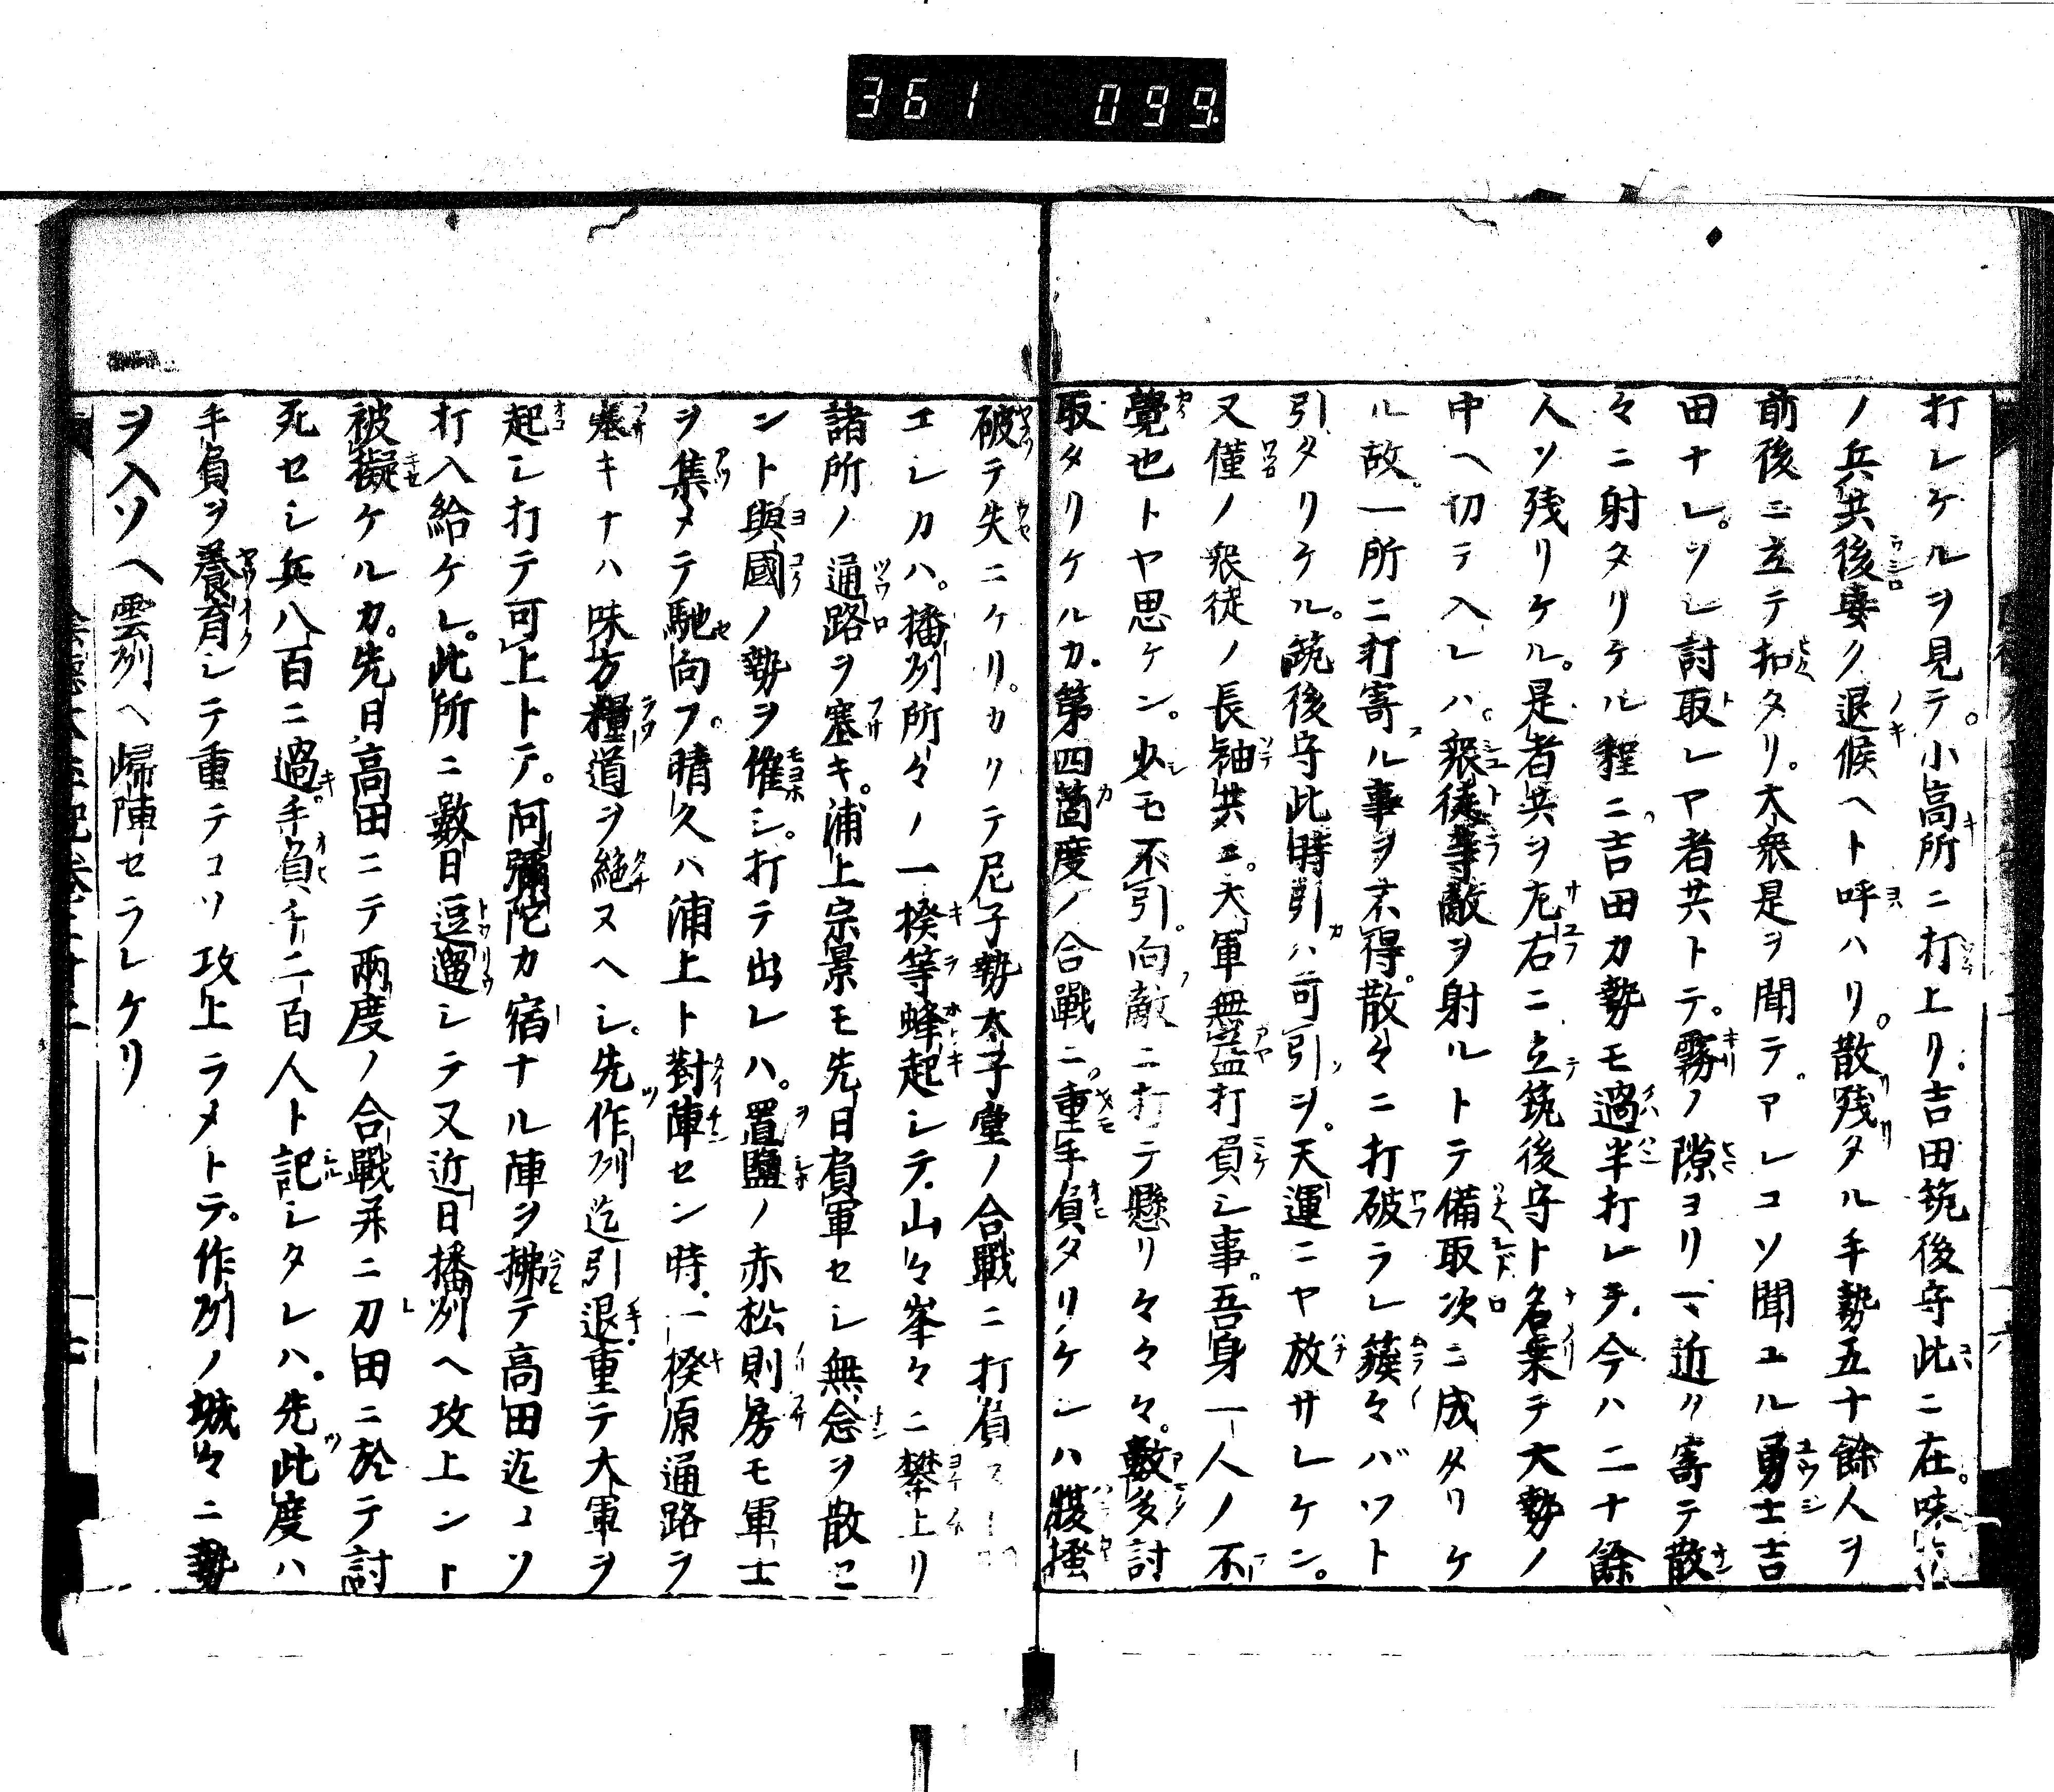 361 099
打レケルヲ見テ。小高所ニ打上リ。吉田筑後守此ニ在。味
ノ兵共後妻ク退候ヘト呼ハリ。散残タル手勢五十餘人ヲ
前後ニ立テ扣タリ。大衆是ヲ聞テ。アレコソ聞ユル勇士吉
田ナレ。ソレ討取レヤ者共トテ。霧ノ隙ヨリ間近ク寄テ散
々ニ射タリケル程ニ。吉田カ勢モ過半打レテ。今ハ二十餘
人ソ残リケル。是者共ヲ左右ニ立筑後守ト名乗テ大勢ノ
中ヘ切テ入レハ。衆徒等敵ヲ射ルトテ備取次ニ成タリケ
ル故。一所ニ打寄ル事ヲ不得。散々ニ打破ラレ簇々バツト
引タリケル。筑後守此時引ハ可引ヲ。天運ニヤ放サレケン。
又僅ノ衆徒ノ長袖共ニ。大軍無益打負シ事。吾身一人ノ不
覺也トヤ思ケン。少モ不引。向敵ニ打テ懸リ々々々。數多討
取タリケルカ。第四箇度ノ合戰ニ。重手負タリケレハ腹搔
破テ失ニケリ。カクテ尼子勢太子堂ノ合戰ニ打負
エレカハ。播州所々ノ一揆等蜂起シテ。山々峯々ニ攀上リ
諸所ノ通路ヲ塞キ。浦上宗景モ先日負軍セシ無念ヲ散セ
ント與國ノ勢ヲ催シ。打テ出レハ。置鹽ノ赤松則房モ軍士
ヲ集メテ馳向フ。晴久ハ浦上ト對陣セン時。一揆原通路ヲ
塞キナハ味方糧道ヲ絶ヌヘシ。先作州迄引退重テ大軍ヲ
起シ打テ可上トテ。阿彌陀カ宿ナル陣ヲ拂テ高田迄コソ
打入給ケレ。此所ニ數日逗遛シテ又近日播州ヘ攻上ント
被擬ケルカ。先日高田ニテ兩度ノ合戰并ニ刀田ニ於テ討
死セシ兵八百ニ過。手負千二百人ト記シタレハ。先此度ハ
手負ヲ養育シテ重テコソ攻上ラメトテ。作州ノ城々ニ勢
ヲ入ソヘ雲州ヘ歸陣セラレケリ